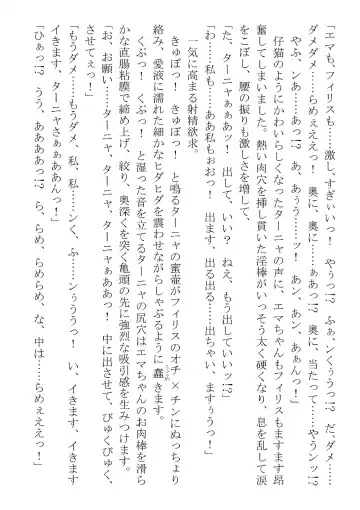 「エマも、フィリスも……激し、すぎいぃっ！　だ、ダメ……
ダメダメ……らめぇええっ！　奥に、奥に……ぁあっ!?　奥に、当たって……やうンッ!?
やふ、ンあ……あっ!?　あ、あぅう……ッ!?　あん、あン、あぁんっ！」
仔猫のようにかわいらしくなったターニャの声に、エマちゃんもフィリスもますます昂
奮してしまいました。熱い肉穴を挿し貫いた淫棒がいっそう太く硬くなり、息を乱して涙
をこぼし、腰の振りも激しさを増して、
「た、ターニャぁぁあッ！　出して、いい？　ねえ、もう出していいッ!?」
「わ、私も……ああ私もぉおっ！　出ます、出る出る……出ちゃい、ますぅうっ！」
一気に高まる射精欲求。
きゅぼっ！　きゅぼっ！　と鳴るターニャの蜜壷がフィリスのオチ×チンにぬっちょり
絡み、愛液に濡れた細かなヒダヒダを震わせながらしゃぶるように蠢きます。
くぷっ！　くぷっ！　と湿った音を立てるターニャの尻穴はエマちゃんのお肉棒を滑ら
かな直腸粘膜で締め上げ、絞り、奥深くを突く亀頭の先に強烈な吸引感を生みつけます。
「お、お願い……ターニャ、ターニャ、ターニャぁああっ！　中に出させて、びゅくびゅく、
させてぇっ！」
「もうダメ……もうダメ、私、私……ンく、ふ……ンぅううっ！　い、イきます、イきます
イきます、ターニャさぁぁああんっ！」
「ひぁっ!?　うう、ああああっ!?　ら、らめ、らめらめ、な、中は……らめぇええっ！」